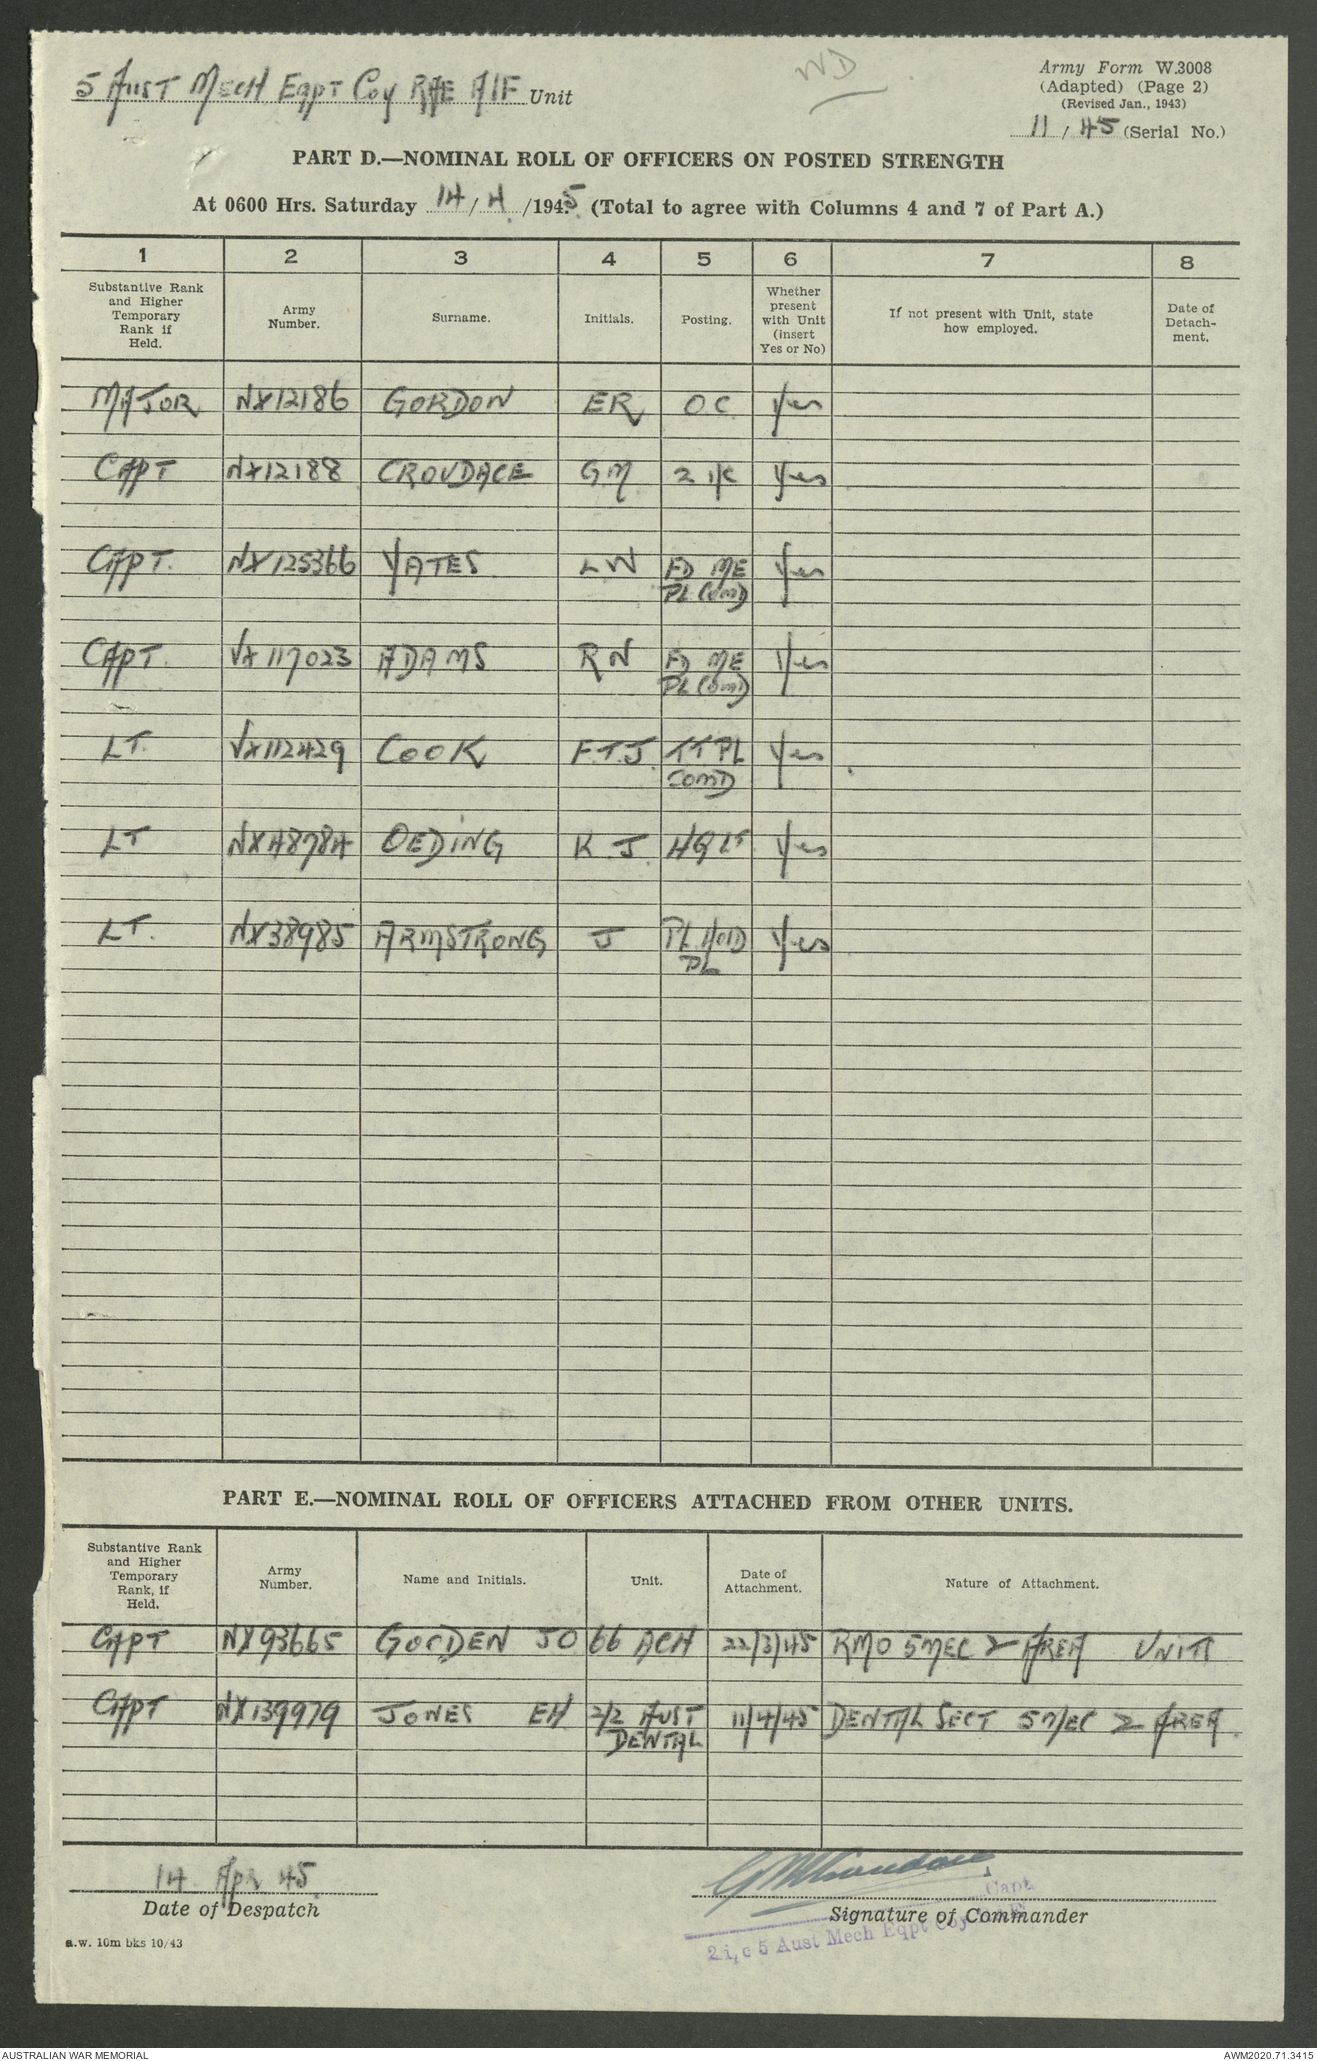 5 Aust Mech Eqpt Coy RAE AIF Unit
WD
Army Form W.3008
(Adapted) (Page 2)
(Revised Jan., 1943)
11 / 45 (Serial No.)
PART D.—NOMINAL ROLL OF OFFICERS ON POSTED STRENGTH
At 0600 Hrs. Saturday 14 / 4 /1945. (Total to agree with Columns 4 and 7 of Part A.)
1 2 3 4 5 6 7 8
Substantive Rank and Higher Temporary Rank if Held. Army Number. Surname. Initials. Posting. Whether present with Unit (insert Yes or No) If not present with Unit, state how employed. Date of Detach-ment.
MAJOR NX12186 GORDON ER OC Yes
CAPT NX12188 CROUDACE GM 2 i/c Yes
CAPT. NX125366 YATES LW FD ME Yes
PL Comd
CAPT. VX117023 ADAMS RN FD ME Yes
PL Comd
LT. VX112429 COOK F.T.J. TT PL Yes
COMD
LT NX48784 OEDING K J. HQ LT Yes
LT. NX38985 ARMSTRONG J PL HOLD Yes
PL
PART E.—NOMINAL ROLL OF OFFICERS ATTACHED FROM OTHER UNITS.
Substantive Rank and Higher Temporary Rank, if Held. Army Number. Name and Initials. Unit. Date of Attachment. Nature of Attachment.
CAPT NX93665 JO 66 ACH 22/3/45 RMO 5MEC & AREA UNITS
CAPT NX139979 JONES EH 2/2 AUST 11/4/45 DENTAL SECT 5MEC & AREA.
DENTAL
14 Apr 45.
Date of Despatch
GM Croudace
Capt.
Signature of Commander
2 i/c 5 Aust Mech Eqpt Coy
a.w. 10m bks 10/43
AUSTRALIAN WAR MEMORIAL
AWM2020.71.3415